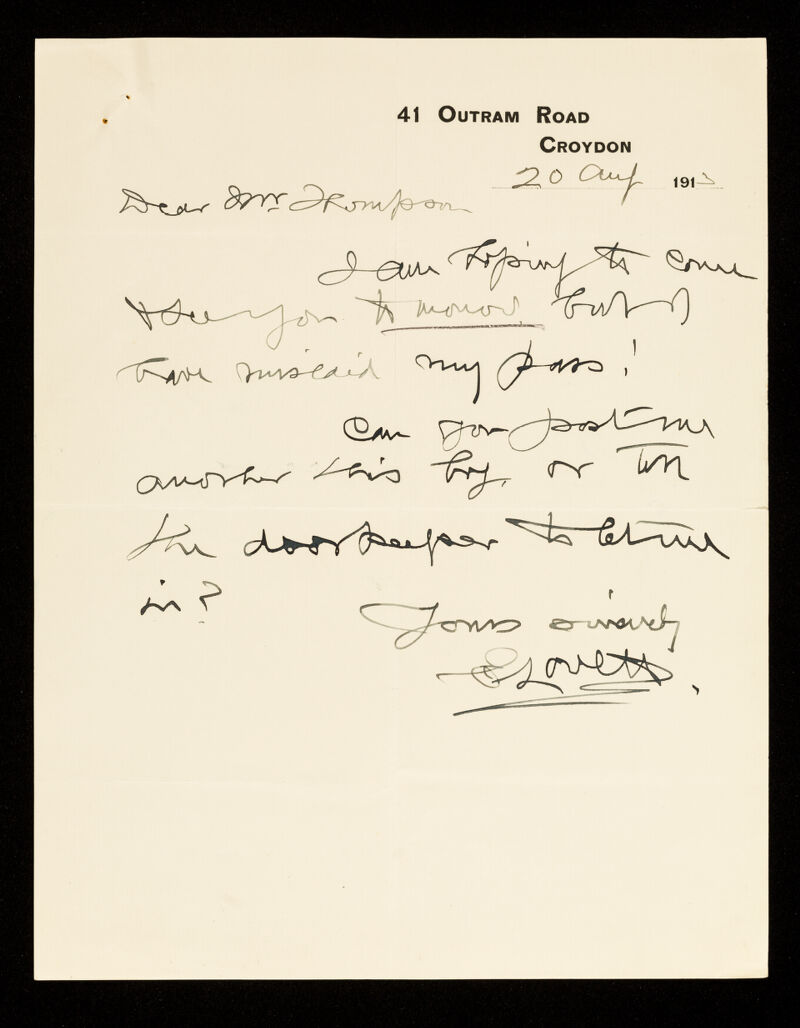 41 OUTRAM ROAD
CROYDON
20 Aug 1913
Dear Mr. Thompson
I am hoping to come
& see you to morrow, but I
have mislaid my pass!
Can you post me
another this by, or tell
the doorkeeper to let me
in?
Yours sincerely
E Lovett.